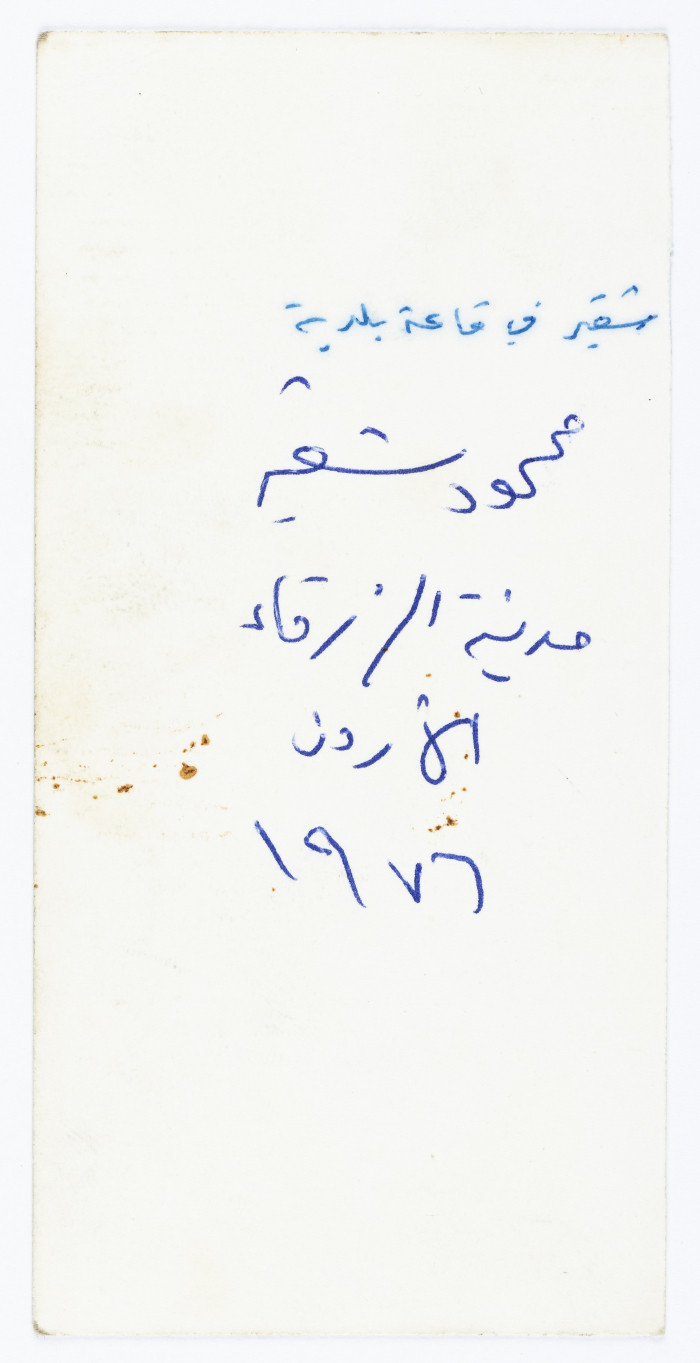 شقير في قاعة بلدية
محمود شقير
مدينة الزرقاء
الأردن
١٩٧٦